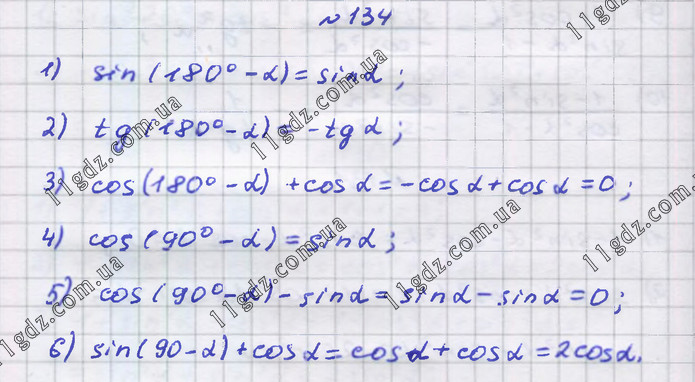 №134
1) sin(180°-α)=sinα;
2) tg(180°-α)=-tgα;
3) cos(180°-α)+cosα=-cosα+cosα=0;
4) cos(90°-α)=sinα;
5) cos(90°-α)-sinα=sinα-sinα=0;
6) sin(90-α)+cosα=cosα+cosα=2cosα.
11gdz.com.ua
11gdz.com.ua
11gdz.com.ua
11gdz.com.ua
11gdz.com.ua
11gdz.com.ua
11gdz.com.ua
11gdz.com.ua